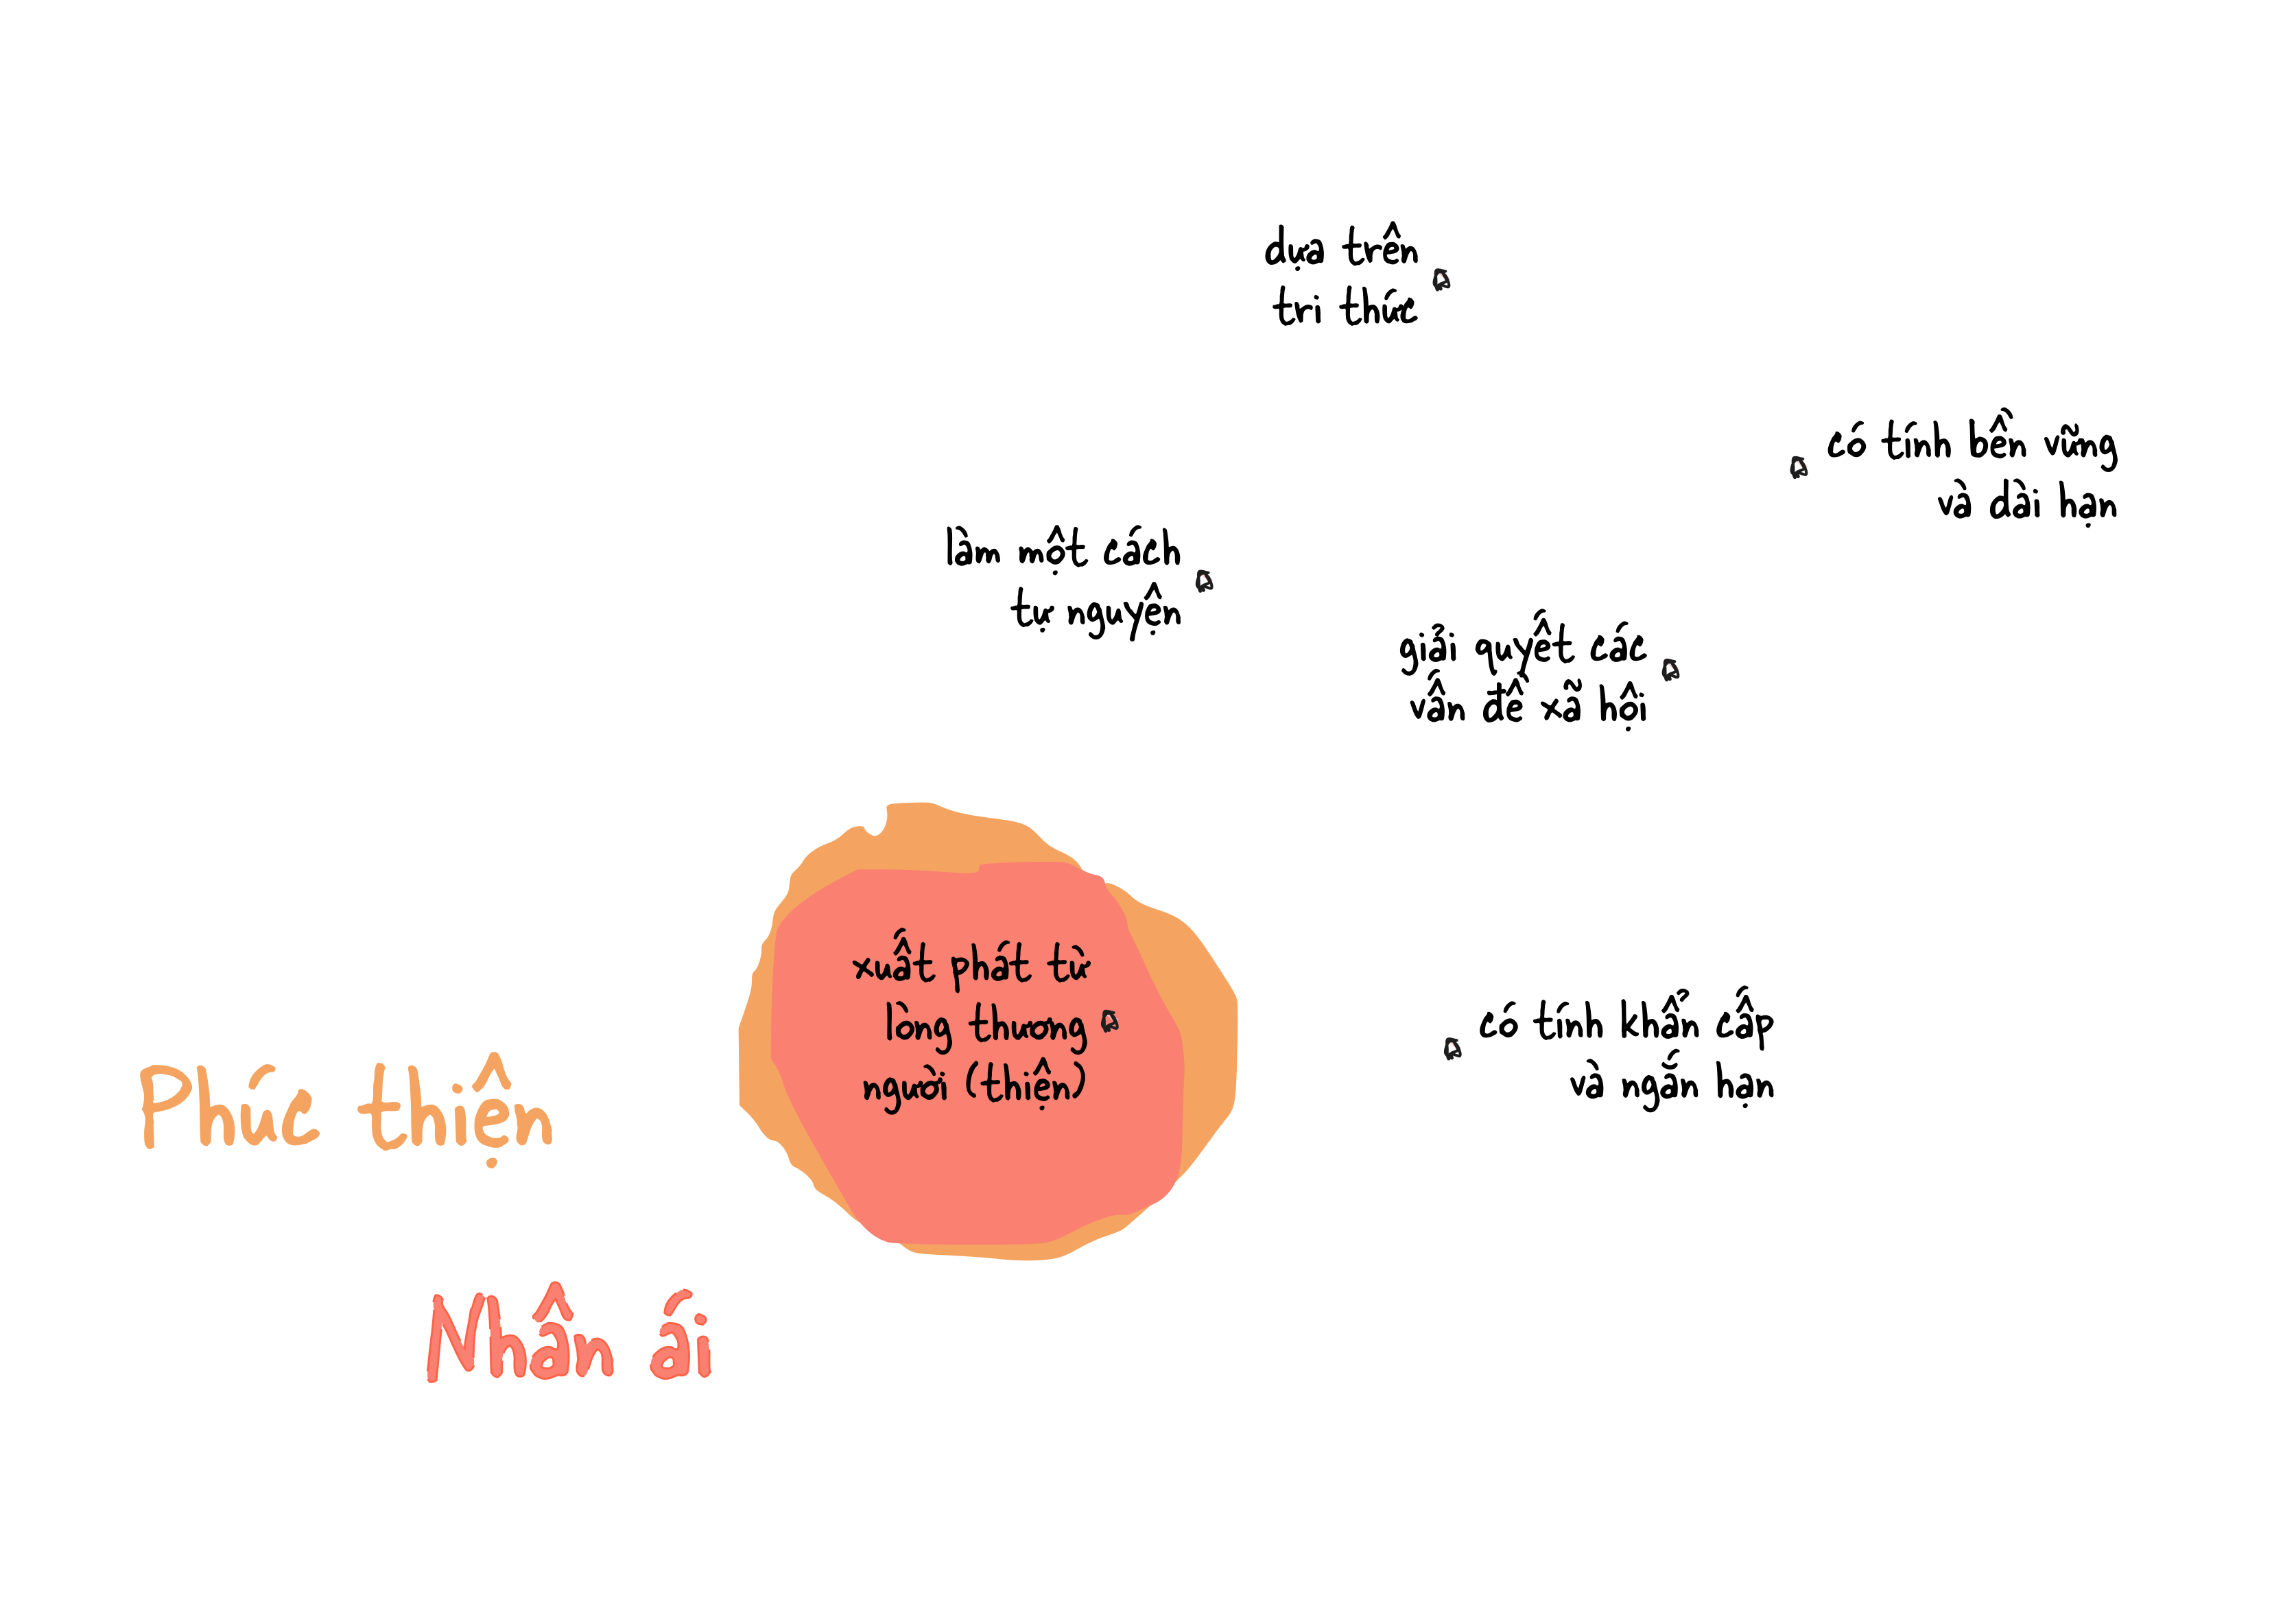 dựa trên
tri thức
có tính bền vững
và dài hạn
làm một cách
tự nguyện
giải quyết các
vấn đề xã hội
xuất phát từ
lòng thương
người (thiện)
có tính khẩn cấp
và ngắn hạn
Phúc thiện
Nhân ái